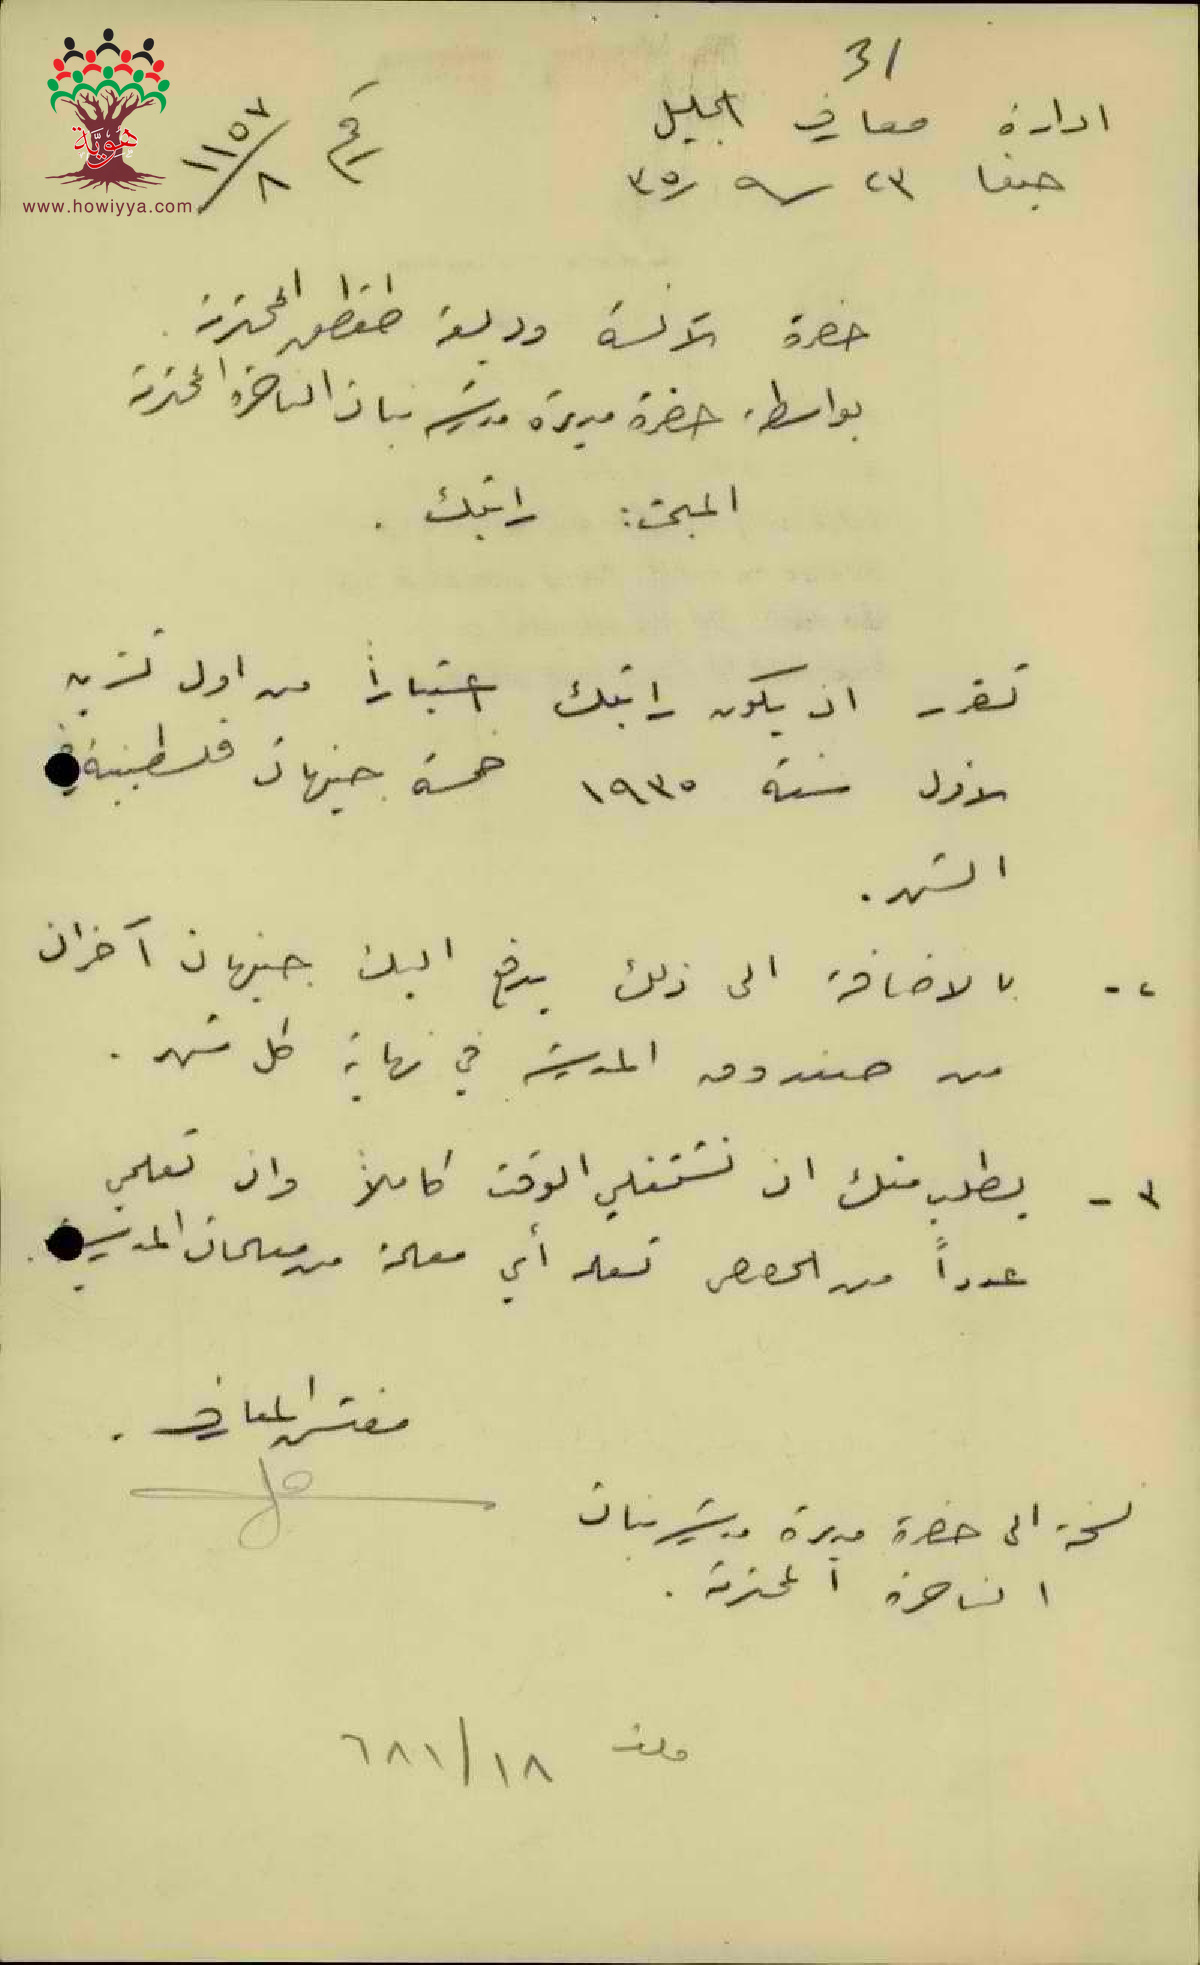 هويّة
www.howiyya.com
31
ادارة معارف الجليل
حيفا ٢٣ / ٩ / ٣٥
رقم ١١٥٧/٨
حضرة الآنسة وديعة قطقط المحترمة .
بواسطة حضرة مديرة مدرسة بنات الناصرة المحترمة
المبحث: راتبك .
تقرر ان يكون راتبك اعتباراً من اول تشرين
الاول سنة ١٩٣٥ خمسة جنيهات فلسطينية في
الشهر .
٢ - بالاضافة الى ذلك يدفع اليك جنيهان آخران
من صندوق المدرسة في نهاية كل شهر .
٣ - يطلب منك ان تشتغلي الوقت كاملاً وان تعلمي
عدداً من الحصص تعدل أي معلمة من معلمات المدرسة .
مفتش المعارف .
نسخة الى حضرة مديرة مدرسة بنات
الناصرة المحترمة .
ملف ١٨/٦٨١